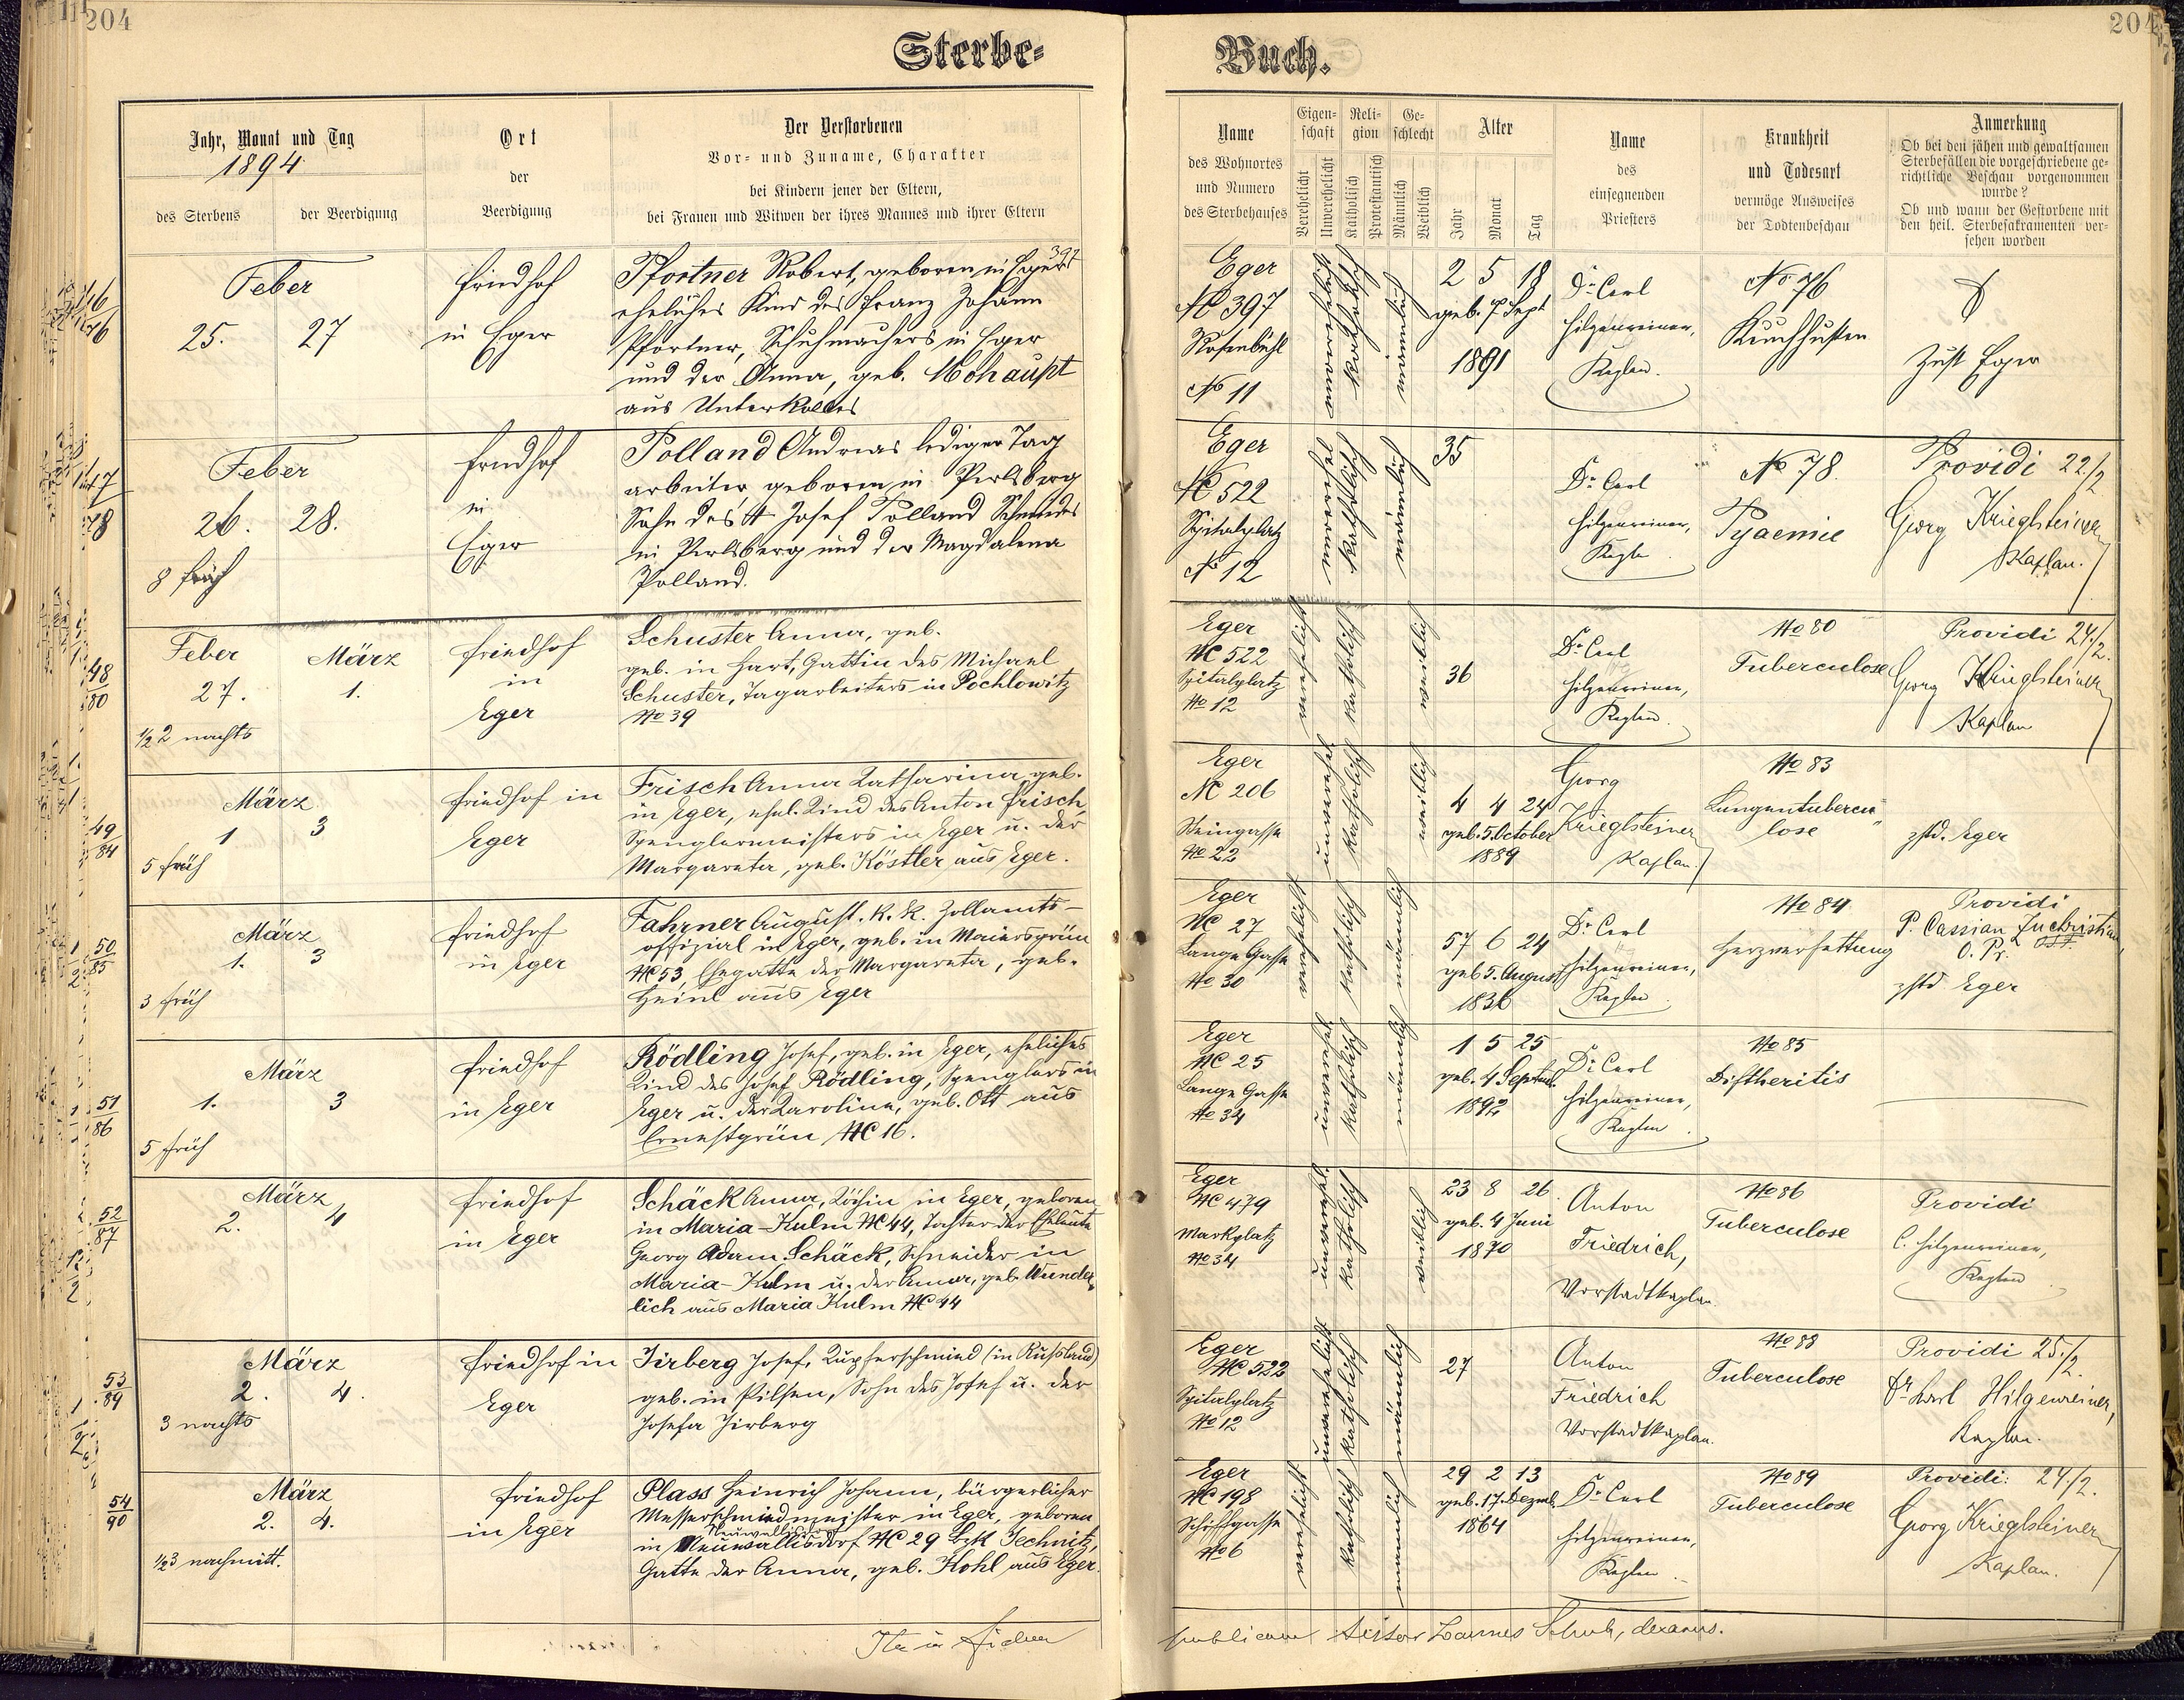 204
204
Sterbe-
Buch.
Jahr, Monat und Tag
1894
des Sterbens
der Beerdigung
Ort
der
Beerdigung
Der Verstorbenen
Vor- und Zuname, Charakter
bei Kindern jener der Eltern,
bei Frauen und Witwen der ihres Mannes und ihrer Eltern
Name
des Wohnortes
und Numero
des Sterbehauses
Eigen-
schaft
Verehelicht
Unverehelicht
Reli-
gion
Katholisch
Protestantisch
Ge-
schlecht
Männlich
Weiblich
Alter
Jahr
Monat
Tag
Name
des
einsegnenden
Priesters
Krankheit
und Todesart
vermöge Ausweises
der Todtenbeschau
Anmerkung
Ob bei den jähen und gewaltsamen
Sterbefällen die vorgeschriebene ge-
richtliche Beschau vorgenommen
wurde?
Ob und wann der Gestorbene mit
den heil. Sterbesakramenten ver-
sehen worden
46
76
Feber
25. 27
Friedhof
in Eger
397
Pfortner Robert, geboren in Eger
eheliches Kind des Franz Johann
Pfortner, Schuhmachers in Eger
und der Anna, geb. Mohaupt
aus
Eger
NC 397
Rosenbühl
No 11
unverehelicht
katholisch
männlich
2 5 18
geb. 7 Sept
1891
Dr. Carl
Hilgenreiner,
Kaplan.
No 76
Keuchhusten
Zust Eger
47
78
Feber
26. 28.
8 früh
Friedhof
in
Eger
Polland Andreas lediger Tag
arbeiter geboren in Perlsberg
Sohn des † Josef Polland Schmiedes
in Perlsberg und der Magdalena
Polland.
Eger
NC 522
Spitalplatz
No 12
unverehel
katholisch
männlich
35
Dr. Carl
Hilgenreiner,
Kapla
No 78.
Pyaemie
Providi 22/2
Georg Krieglsteiner
Kaplan.
48
80
Feber März
27. 1.
1/2 2 nachts
Friedhof
in
Eger
Schuster Anna, geb.
geb. in Hart, Gattin des Michael
Schuster, Tagarbeiters in Pochlowitz
No 39
Eger
NC 522
Spitalplatz
No 12
verehelicht
katholisch
weiblich
36
Dr. Carl
Hilgenreiner,
Kaplan.
No 80
Tuberculose
Providi 24/2.
Georg Krieglsteiner
Kaplan
49
84
März
1 3
5 früh
Friedhof in
Eger
Frisch Anna Katharina, geb.
in Eger, ehel. Kind des Anton Frisch,
Spenglermeisters in Eger u. der
Margareta, geb. Köstler aus Eger.
Eger
NC 206
Steingasse
No 22
unverehel
katholisch
weiblich
4 4 24
geb. 5. October
1889
Georg
Krieglsteiner
Kaplan.
No 83
Lungentubercu
lose
zstd. Eger
50
85
März
1. 3
3 früh
Friedhof
in Eger
Fahrner August. K. K. Zollamts-
offizial in Eger, geb. in Maiersgrün
NC 53, Ehegatte der Margareta, geb.
Heinl aus Eger
Eger
NC 27
Lange Gasse
No 30
verehelicht
katholisch
männlich
57 6 24
geb 5. August
1836
Dr. Carl
Hilgenreiner,
Kaplan.
No 84
Herzverfettung
Providi
P. Cassian
O. Pr.
zstd Eger
51
86
März
1. 3
5 früh
Friedhof
in Eger
Rödling Josef, geb. in Eger, eheliches
Kind des Josef Rödling, Spenglers in
Eger u. der Karolina, geb. Ott aus
Ernestgrün NC 16.
Eger
NC 25
Lange Gasse
No 34
unverehel
katholisch
männlich
1 5 25
geb. 4 Septemb.
1892
Dr. Carl
Hilgenreiner,
Kaplan.
No 85
Diftheritis
52
87
März
2. 4
Friedhof
in Eger
Schäck Anna, Köchin in Eger, geboren
in Maria-Kulm NC 44, Tochter der Eheleute
Georg Adam Schäck, Schneider in
Maria-Kulm u. der Anna, geb. Wunder-
lich aus Maria Kulm NC 44
Eger
NC 479
Marktplatz
No 34
unverehel.
katholisch
weiblich
23 8 26.
geb. 4 Juni
1870
Anton
Friedrich,
Vorstadtkaplan.
No 86
Tuberculose
Providi
C. Hilgenreiner,
Kaplan
53
89
März
2. 4.
3 nachts
Friedhof in
Eger
Jirberg Josef, Kupferschmied (in Russland)
geb. in Pilsen, Sohn des Josef u. der
Josefa Jirberg
Eger
NC 522
Spitalplatz
No 12
unverehelicht
katholisch
männlich
27
Anton
Friedrich
Vorstadtkaplan.
No 88
Tuberculose
Providi 25./2.
Dr Karl Hilgenreiner,
Kaplan.
54
90
März
2. 4.
1/2 3 nachmitt.
Friedhof
in Eger
Plass Heinrich Johann, bürgerlicher
Messerschmiedmeister in Eger, geboren
in Neuwallisdorf NC 29 Bzk Jechnitz,
Gatte der Anna, geb. Kohl aus Eger.
Eger
NC 198
Schiffgasse
No 6
verehelicht
katholisch
männlich
29 2 13
geb. 17. Dezemb.
1864
Dr. Carl
Hilgenreiner,
Kaplan.
No 89
Tuberculose
Providi: 24/2.
Georg Krieglsteiner
Kaplan.
Ita in fidem
publicam testor Schuh, decanus.